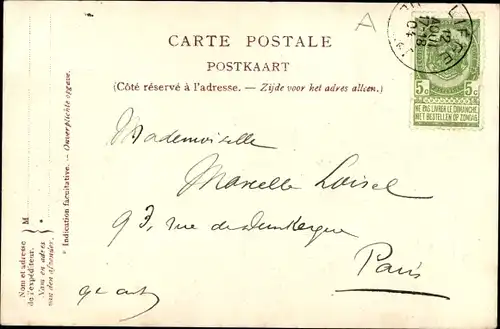 A
CARTE POSTALE
POSTKAART
(Côté réservé à l'adresse. — Zijde voor het adres alleen.)
LIEGE
12
AOUT
04
5c 5c
NE PAS LIVRER LE DIMANCHE
NIET BESTELLEN OP ZONDAG
Mademoiselle
Marcelle Loisel
93, rue de Dunkerque
Paris
* Indication facultative. — Onverplichte opgave.
M *
Nom et adresse
de l'expéditeur.
Naam en adres
van den afzender.